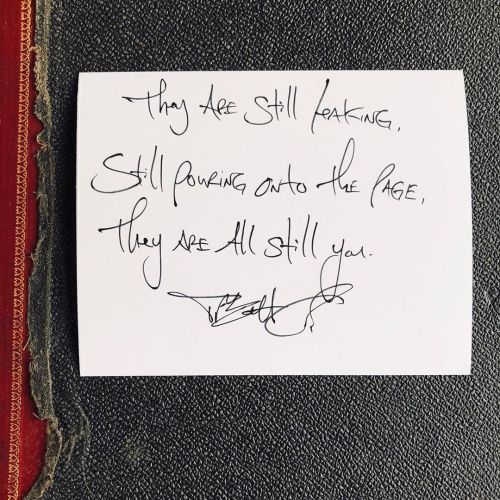 They ARE Still leaking,
Still pouring onto the page,
They ARE All still you.